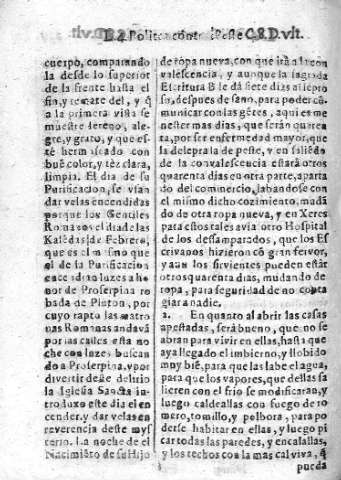 Politic contr Peste C.8. D.vlt.
cuerpo, comparando
la desde lo superior
de la frente hasta el
fin, y remate del, y q̃
a la primera vista se
muestre sereno, ale-
gre, y grato, y que es-
tè hermoseado con
buẽ color, y tez clara,
limpia. El dia de su
Purificacion, se vian
dar velas encendidas
porque los Gentiles
Romanos el dia de las
Kalẽdas de Febrero,
que es el mismo que
el de la Purificacion
encendian luzes a ho-
nor de Proserpina ro
bada de Pluton, por
cuyo rapto las matro
nas Romanas andavã
por las calles esta no
che con luzes buscan
do a Proserpina, y por
divertir de delirio
la Iglesia Sancta in
troduxo este dia el en
cender, y dar velas en
reverencia deste mys
terio. La noche de el
Nacimiẽto de su Hijo
de ropa nueva, con que irà a la con
valescencia, y aunque la sagrada
Escritura B le dà siete dias al lepro
so, despues de sano, para poder cõ
municar con las gẽtes, aqui es me
nester mas dias, que serán quaren
ta, por ser enfermedad mayor, que
la de lepra la de peste, y en saliẽdo
de la convalescencia estarà otros
quarenta dias en otra parte, aparta
do del commercio, labandose con
el mismo dicho cozimiento, mudã
do de otra ropa nueva, y en Xeres
para estos tales avia otro Hospital
de los dessamparados, que los Es
crivanos hizieron cõ gran fervor,
y aun los sirvientes pueden estar
otros quarenta dias, mudando de
ropa, para seguridad de no conta
giar a nadie.
2. En quanto al abrir las casas
apestadas, serà bueno, que no se
abran para vivir en ellas, hasta que
aya llegado el imbierno, y llobido
muy biẽ, para que las labe el agua,
para que los vapores, que dellas sa
lieren con el frio se modificaran, y
luego caldeallas con fuego de ro
mero, tomillo, y polbora, para po
derse habitar en ellas, y luego pi
car todas las paredes, y encalallas,
y los techos con la mas cal viva, q̃
pueda